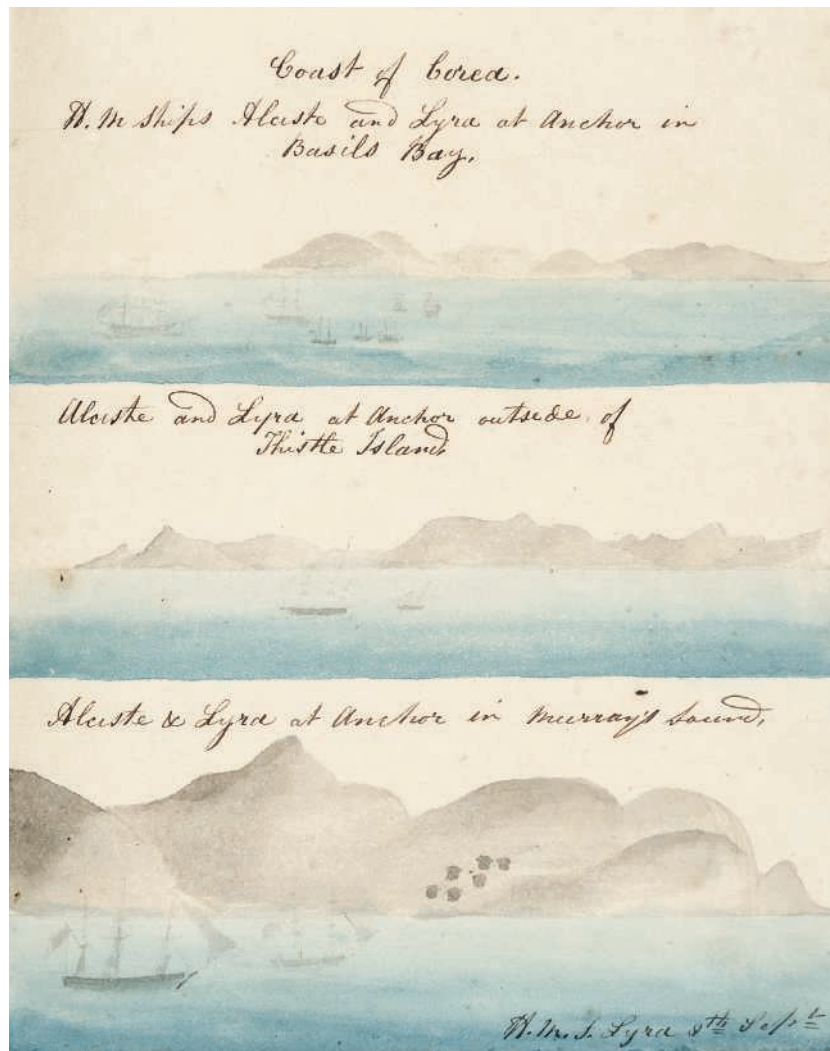 Coast of Corea.
H. M Ships Alceste and Lyra at Anchor in
Basils Bay.
Alceste and Lyra at Anchor outside of
Thistle Island
Alceste & Lyra at Anchor in Murray's Sound,
H. M. S. Lyra 8th Sept